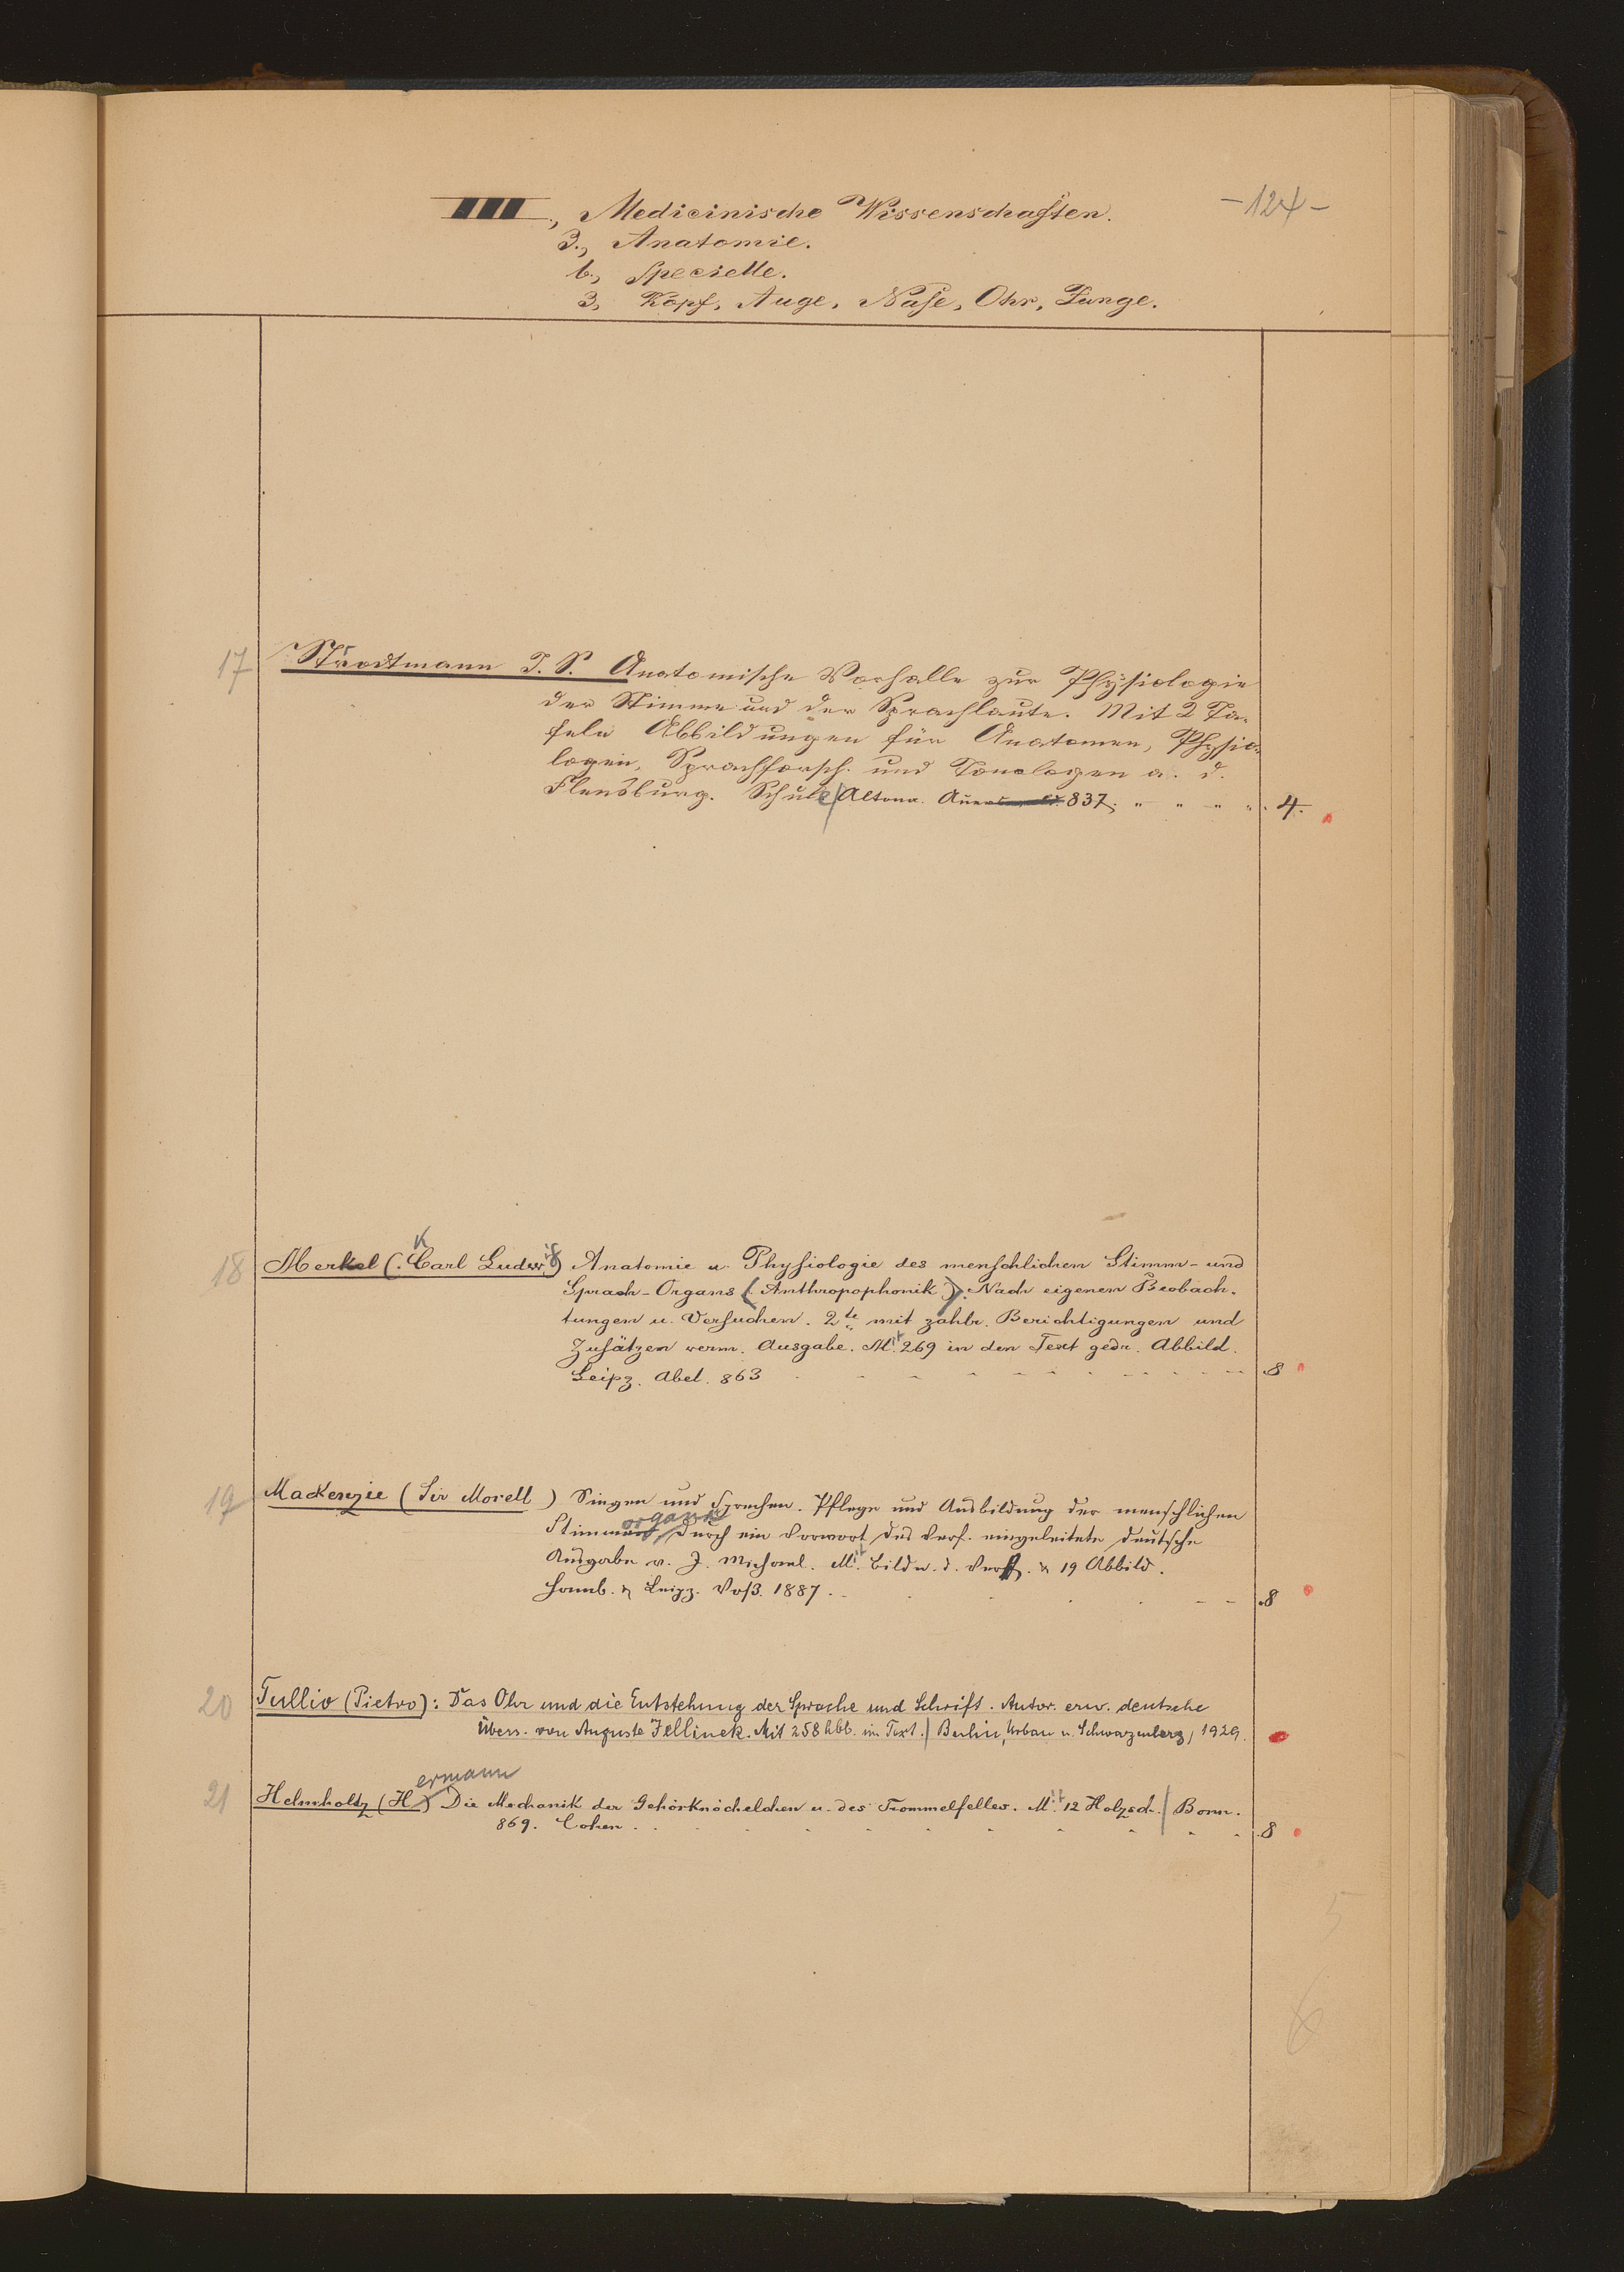 III., Medicinische Wissenschaften.
-124-
3., Anatomie.
b., Specielle.
3, Kopf, Auge, Nase, Ohr, Zunge.
17 Strodtmann J. S. Anatomische Vorhalle zur Physiologie
der Stimme und der Sprachlaute. Mit 2 Ta-
feln Abbildungen für Anatomen, Physio-
logen, Sprachforsch. und Tonologen a. d.
Flensburg. Schule/Altona. 837. " " " " 4.
18 Merkel (Karl Ludwig) Anatomie u. Physiologie des menschlichen Stimm- und
Sprach-Organs (Anthropophonik). Nach eigenen Beobach-
tungen u. Versuchen. 2te mit zahlr. Berichtigungen und
Zusätzen verm. Ausgabe. Mit 269 in den Text gedr. Abbild.
Leipz. Abel. 863 8
19 MacKenzie (Sir Morell) Singen und Sprechen. Pflege und Ausbildung der menschlichen
Stimmorgane. Durch ein Vorwort des Verf. eingeleitete deutsche
Ausgabe v. J. Michael. Mit Bildn. d. Verf. & 19 Abbild.
Hamb. & Leipz. Voß. 1887. 8
20 Tullio (Pietro): Das Ohr und die Entstehung der Sprache und Schrift. Autor. erw. deutsche
Übers. von Auguste Jellinek. Mit 258 Abb. im Text./ Berlin, Urban u. Schwarzenberg, 1929.
21 Helmholtz (Hermann) Die Mechanik der Gehörknöchelchen u. des Trommelfelles. Mit 12 Holzsch./ Bonn.
869. Cohen. 8
5
6